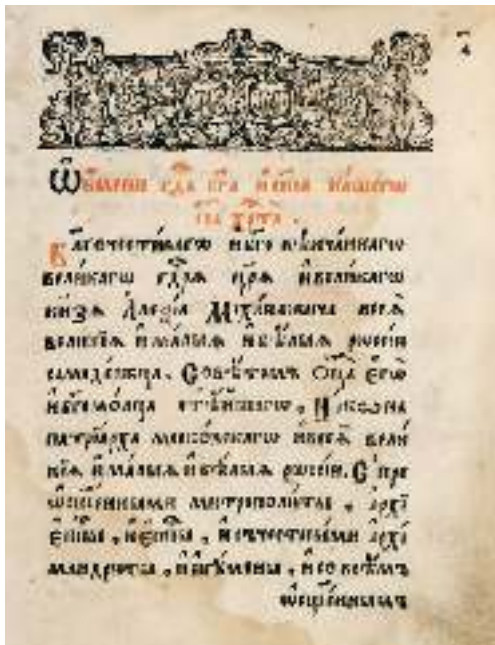 Ѿ гдⷭ҇а бг҃а и҆ сп҃са нашегѡ
і҆иⷭ҇а хрⷭ҇та
Бл҃гочестиваг҆ѡ и҆ бг҃овѣнчаннагѡ
великагѡ гдⷭ҇рѧ цр҃ѧ и҆ великагѡ
кнѧзѧ Алеѯіа Міхаиловича всеѧ̀
великїѧ и҆ малыѧ и҆ бѣлыѧ рѡссіи
самодержца. Совѣтомъ Оц҃а є҆гѡ̀
и҆ бг҃омолца ст҃ѣйшагѡ, Никѡна
патрїарха московскагѡ и҆ всеѧ̀ вели
кїѧ и҆ малыѧ и҆ бѣлыѧ рѡссіи. С пре
ѡсщ҃енными митрополиты, а҆рхї
є҆пⷭ҇кпы, и҆ є҆пⷭ҇кпы, и҆ с честными а҆рхї
мандриты, и҆ и҆гꙋмены, и҆ со всѣмъ
ѡсщ҃еннымъ